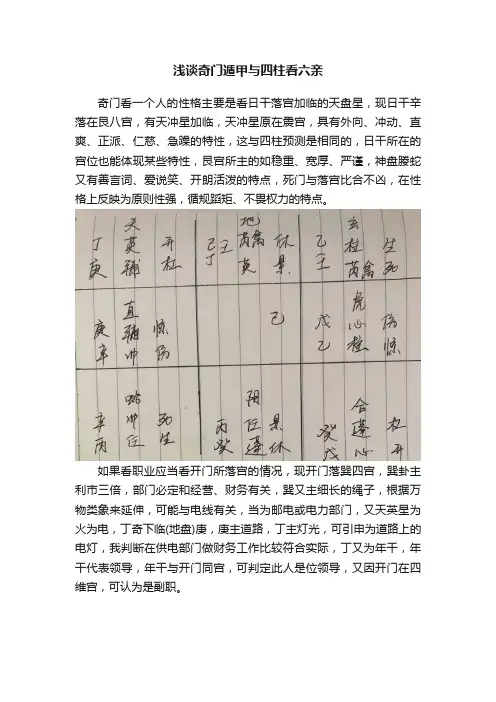 浅谈奇门遁甲与四柱看六亲
奇门看一个人的性格主要是看日干落宫加临的天盘星，现日干辛
落在艮八宫，有天冲星加临，天冲星原在震宫，具有外向、冲动、直
爽、正派、仁慈、急躁的特性，这与四柱预测是相同的，日干所在的
宫位也能体现某些特性，艮宫所主的如稳重、宽厚、严谨，神盘螣蛇
又有善言词、爱说笑、开朗活泼的特点，死门与落宫比合不凶，在性
格上反映为原则性强，循规蹈矩、不畏权力的特点。
天 地 玄
丁 英 开 己壬 芮禽 休 乙 柱 生
庚 辅 杜 丁 英 景 壬 芮禽 死
直 虎
庚 辅 惊 己 戊 心 伤
辛 冲 伤 乙 柱 惊
蛇 阴 合
辛 冲 死 丙 任 景 癸 蓬 杜
丙 任 生 癸 蓬 休 戊 心 开
如果看职业应当看开门所落宫的情况，现开门落巽四宫，巽卦主
利市三倍，部门必定和经营、财务有关，巽又主细长的绳子，根据万
物类象来延伸，可能与电线有关，当为邮电或电力部门，又天英星为
火为电，丁奇下临(地盘)庚，庚主道路，丁主灯光，可引申为道路上的
电灯，我判断在供电部门做财务工作比较符合实际，丁又为年干，年
干代表领导，年干与开门同宫，可判定此人是位领导，又因开门在四
维宫，可认为是副职。